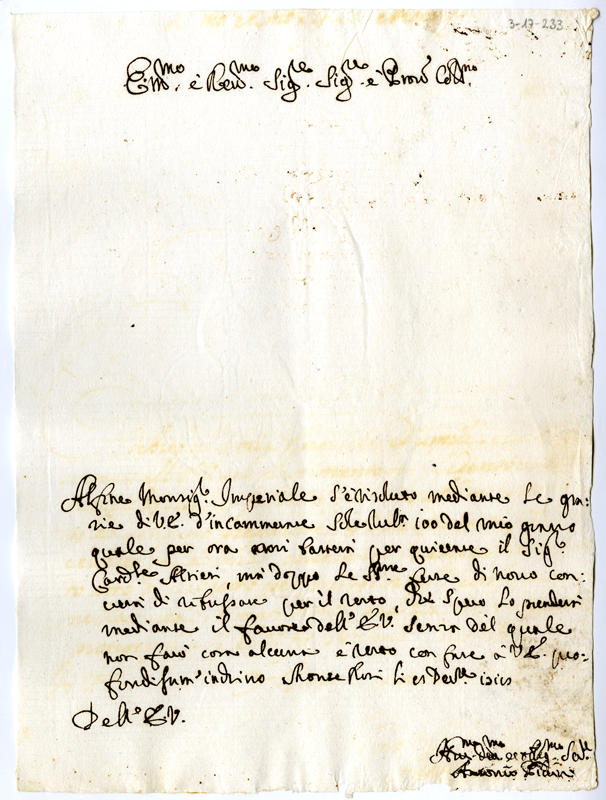 3-17-233
Em.mo e Rev.mo Sig.re Sig.re e Pron Coll.mo
Alfine Monsig.r Imperiale s'è ridotto mediante le gra-
zie di V.E. d'incammerare sole rub. 100 del mio grano
quale per ora per quietare il Sig.r
Card.le Altieri, mà doppo le S.me feste di novo con-
verrà di rifussare per il resto, Del spero lo prenderà
mediante il favore dell' E.V. senza del quale
non farò cosa alcuna e resto con fare à V.E. pro-
fondissim' inchino Monte Flori li
Dell' E.V.
Hu.mo Dev.mo et Obblig.mo Ser.
Antonio